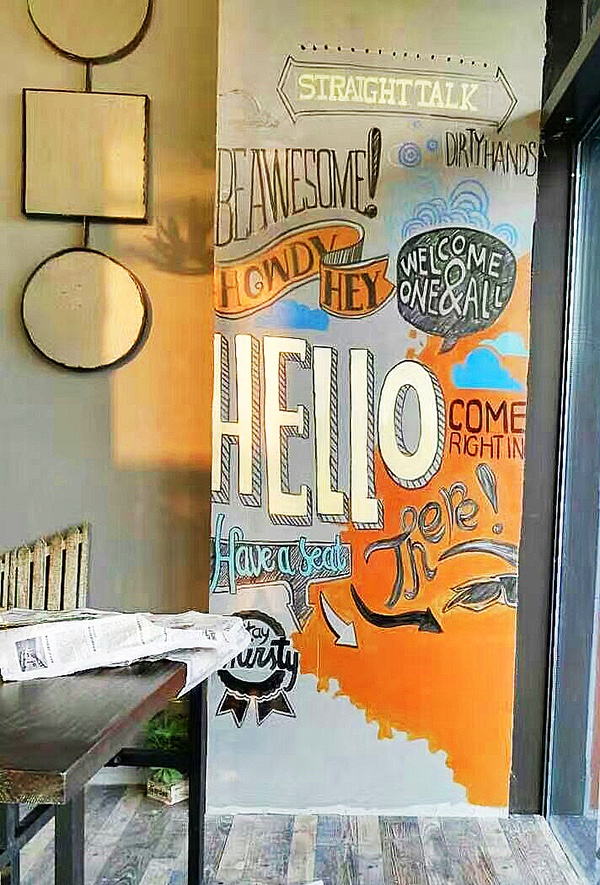 STRAIGHT TALK
DIRTY HANDS
BE AWESOME!
HOWDY
HEY
WELCOME
ONE & ALL
HELLO
COME
RIGHT IN
There!
Have a seat
Stay
thirsty